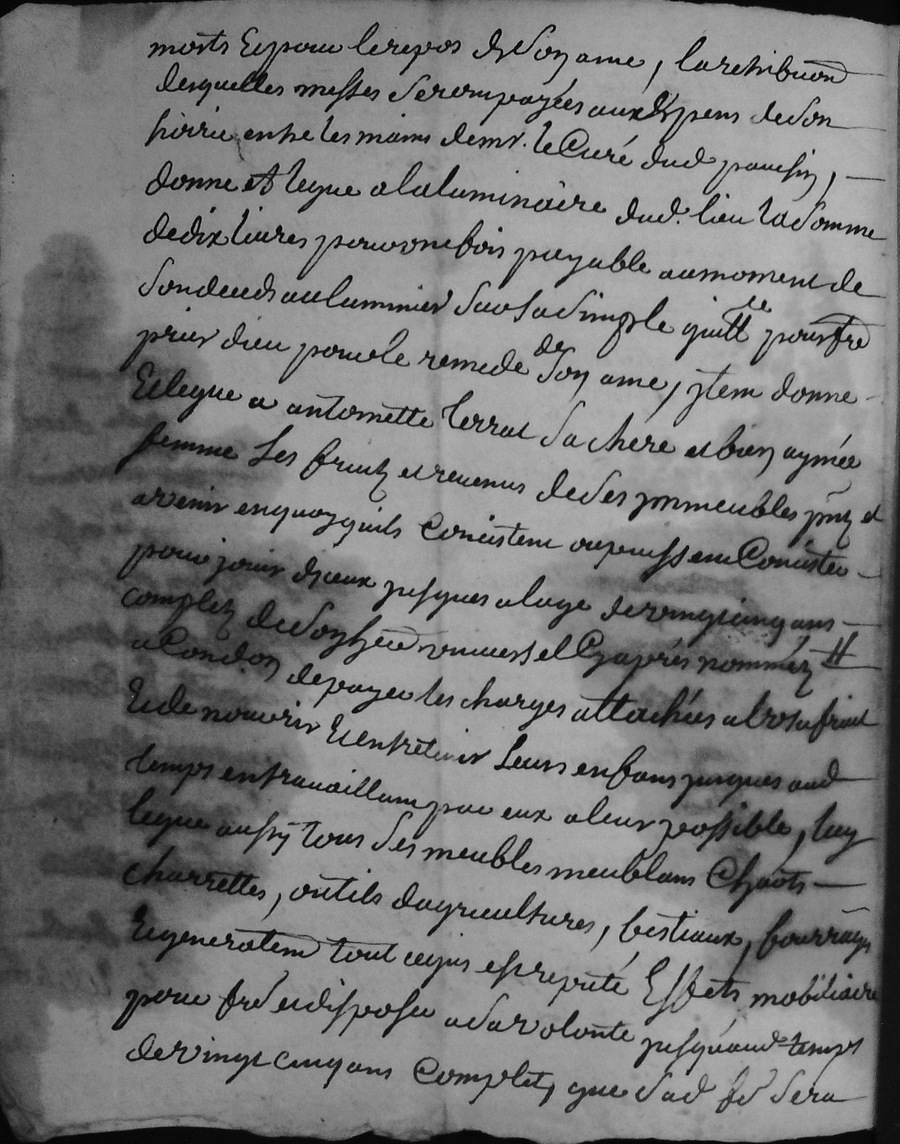 morts Et pour le repos de Son ame, la retribuon
desquelles messes Seront payées aux dépens de Son
hoirie entre les mains de mr. le Curé dud pauchin,
donne et legue a la luminaire dud. lieu la Somme
de dix livres pour une fois payable au moment de
Son deceds au luminier Sur Sa Simple quittce pour fre
prier dieu pour le remede de Son ame, jtem donne
Et legue a antoinette terrat Sa chere et bien aymée
femme Les fruitz et revenus de Ses ymmeubles pntz et
avenir en quoy quils Consistent ou puissent Consister
pour jouir d'jceux jusques a lage de vingt cinq ans
completz de Son herer universsel Cy après nommé,
a Condon de payer les charges attachées a l'usufruit
Et de nourrir Et entretenir Leurs enfans jusques aud
temps en travaillant par eux a leur possible, luy
legue aussy tous Ses meubles meublans Chars
charrettes, outils dagricultures, bestiaux, fourrages
Et generalemt tout ce qui est reputé Effets mobiliaire
pour fre et disposer a Sa volonté jusqu'aud temps
de vingt cinq ans Completz que Sad fe Sera